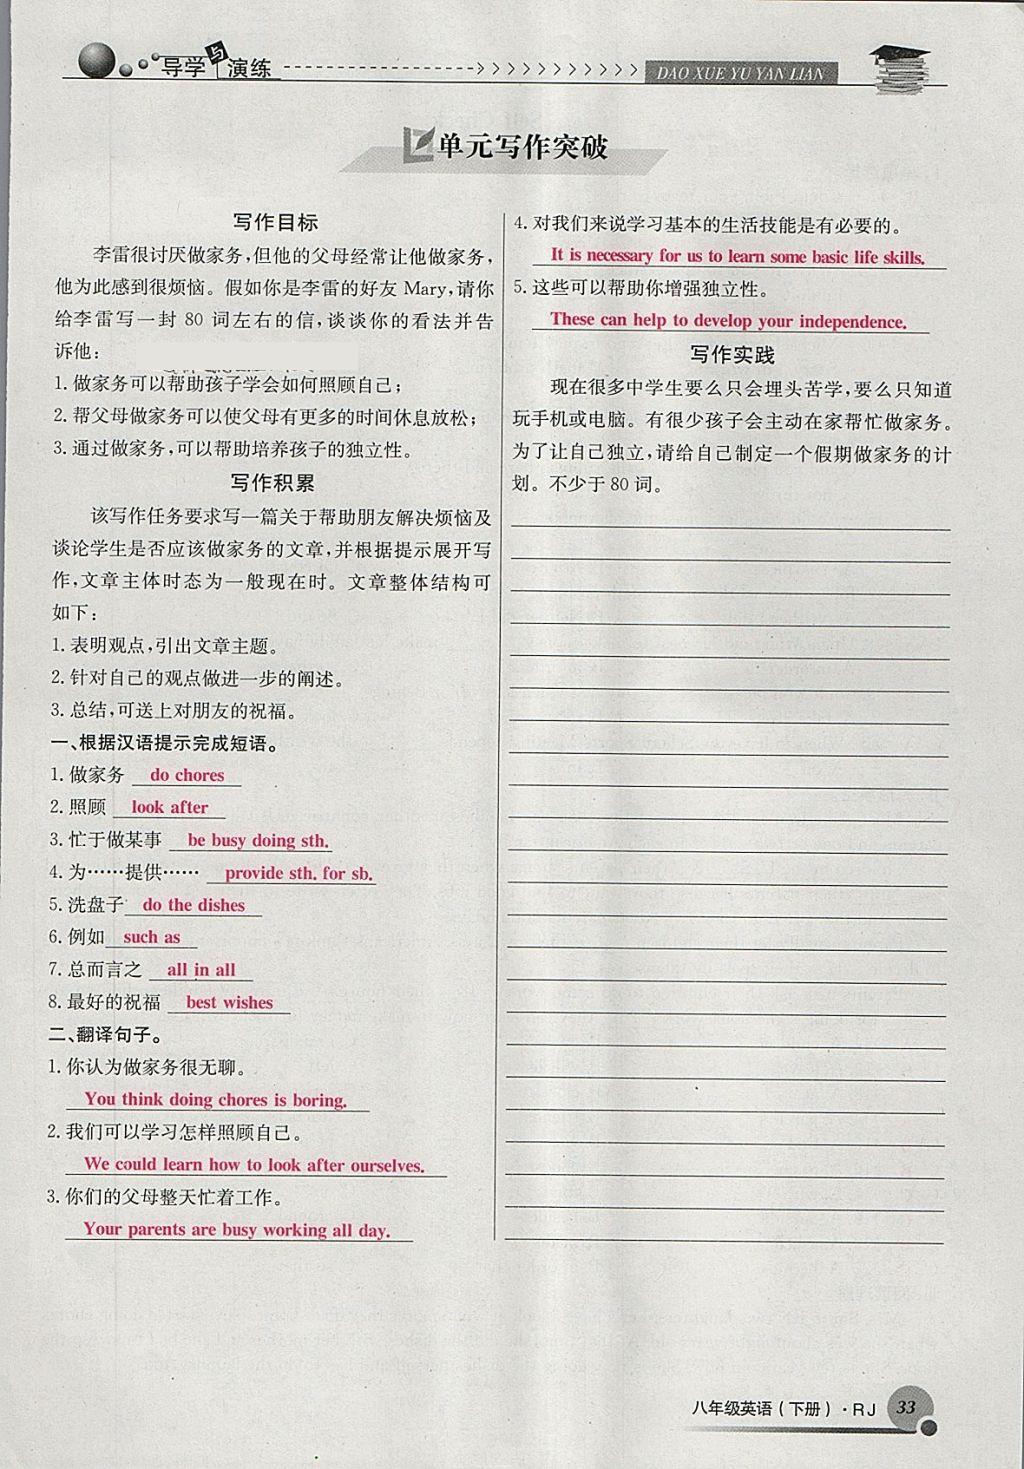 导学与演练
DAO XUE YU YAN LIAN
单元写作突破
写作目标
李雷很讨厌做家务,但他的父母经常让他做家务,
他为此感到很烦恼。假如你是李雷的好友 Mary,请你
给李雷写一封 80 词左右的信,谈谈你的看法并告
诉他:
1. 做家务可以帮助孩子学会如何照顾自己;
2. 帮父母做家务可以使父母有更多的时间休息放松;
3. 通过做家务,可以帮助培养孩子的独立性。
写作积累
该写作任务要求写一篇关于帮助朋友解决烦恼及
谈论学生是否应该做家务的文章,并根据提示展开写
作,文章主体时态为一般现在时。文章整体结构可
如下:
1. 表明观点,引出文章主题。
2. 针对自己的观点做进一步的阐述。
3. 总结,可送上对朋友的祝福。
一、根据汉语提示完成短语。
1. 做家务 do chores
2. 照顾 look after
3. 忙于做某事 be busy doing sth.
4. 为……提供…… provide sth. for sb.
5. 洗盘子 do the dishes
6. 例如 such as
7. 总而言之 all in all
8. 最好的祝福 best wishes
二、翻译句子。
1. 你认为做家务很无聊。
You think doing chores is boring.
2. 我们可以学习怎样照顾自己。
We could learn how to look after ourselves.
3. 你们的父母整天忙着工作。
Your parents are busy working all day.
4. 对我们来说学习基本的生活技能是有必要的。
It is necessary for us to learn some basic life skills.
5. 这些可以帮助你增强独立性。
These can help to develop your independence.
写作实践
现在很多中学生要么只会埋头苦学,要么只知道
玩手机或电脑。有很少孩子会主动在家帮忙做家务。
为了让自己独立,请给自己制定一个假期做家务的计
划。不少于 80 词。
八年级英语(下册)·RJ 33